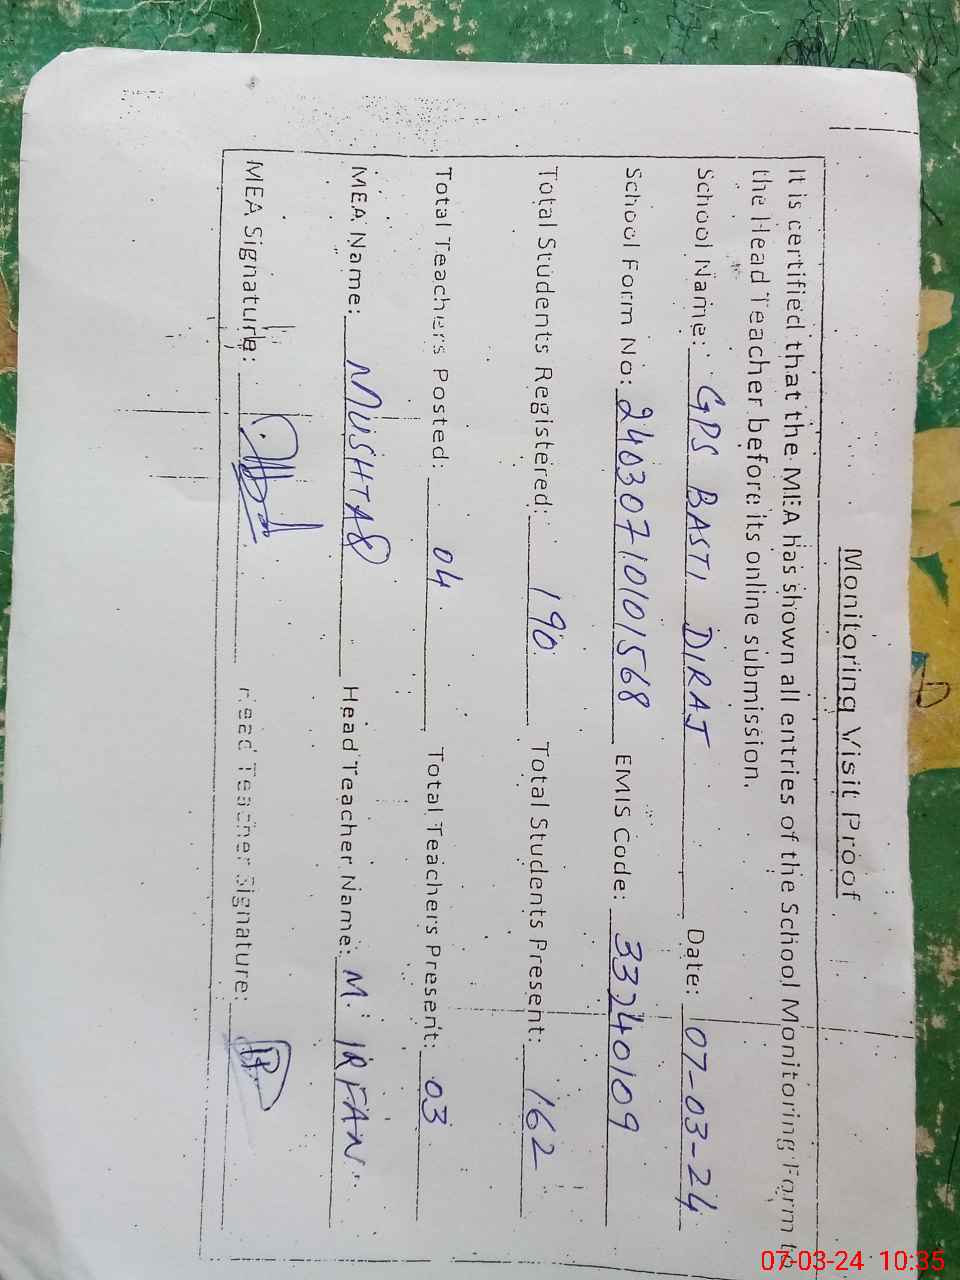 Monitoring Visit Proof
It is certified that the MEA has shown all entries of the School Monitoring Form to
the Head Teacher before its online submission.
School Name: GPS BASTI DIRAJ Date: 07-03-24
School Form No: 2403071010101568 EMIS Code: 33240109
Total Students Registered: 190 Total Students Present: 162
Total Teachers Posted: 04 Total Teachers Present: 03
MEA Name: MUSHTAQ Head Teacher Name: M. IRFAN
MEA Signature: Head Teacher Signature:
07-03-24 10:35